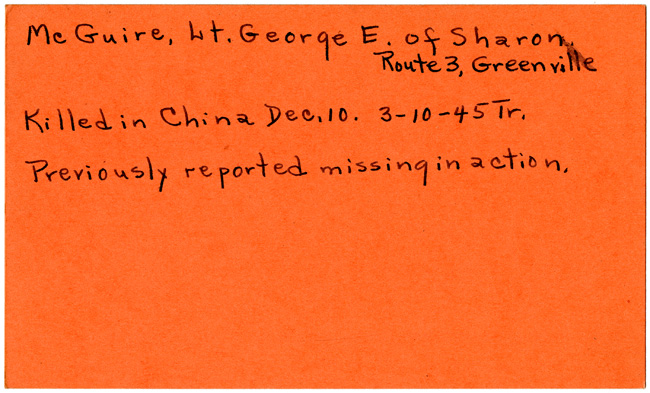 McGuire, Lt. George E. of Sharon.
Route 3, Greenville
Killed in China Dec. 10. 3-10-45 Tr.
Previously reported missing in action.